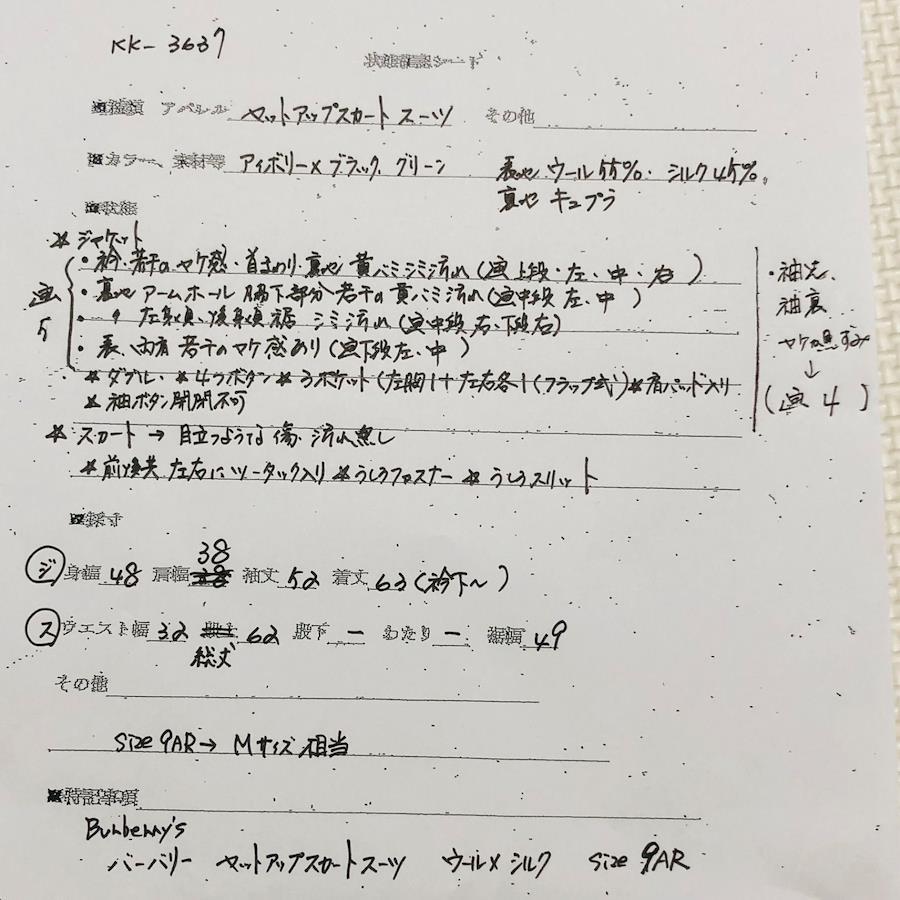 KK-3637
状態確認シート
■種類 アパレル セットアップスカートスーツ その他
■カラー、素材等 アイボリー×ブラック グリーン 表地 ウール55%. シルク45%.
裏地 キュプラ
■状態
* ジャケット
・衿 若干のヤケ感・首まわり・裏地 黄バミシミ汚れ(画上段・左、中、右)
・裏地 アームホール 脇下部分 若干の黄バミ汚れ(画中段 左、中)
・ 〃 左身頃、後身頃 裾 シミ汚れ(画中段 右、下段右)
・表、両肩 若干のヤケ感あり(画下段左、中)
画5
・袖先、
袖裏
ヤケ黒ずみ
↓
(画4)
* ダブル・* 4つボタン * 3ポケット(左胸1+左右各1(フラップ式)* 肩パッド入り
* 袖ボタン開閉不可
* スカート → 目立つような傷、汚れ無し
* 前後共 左右にツータック入り * うしろファスナー * うしろスリット
■採寸
ジ 身幅 48 肩幅 38 袖丈 52 着丈 62(衿下〜)
ス ウエスト幅 32 総丈 62 股下 ー わたり ー 裾幅 49
その他
size 9AR→ Mサイズ相当
■特記事項
Burberry's
バーバリー セットアップスカートスーツ ウール×シルク size 9AR